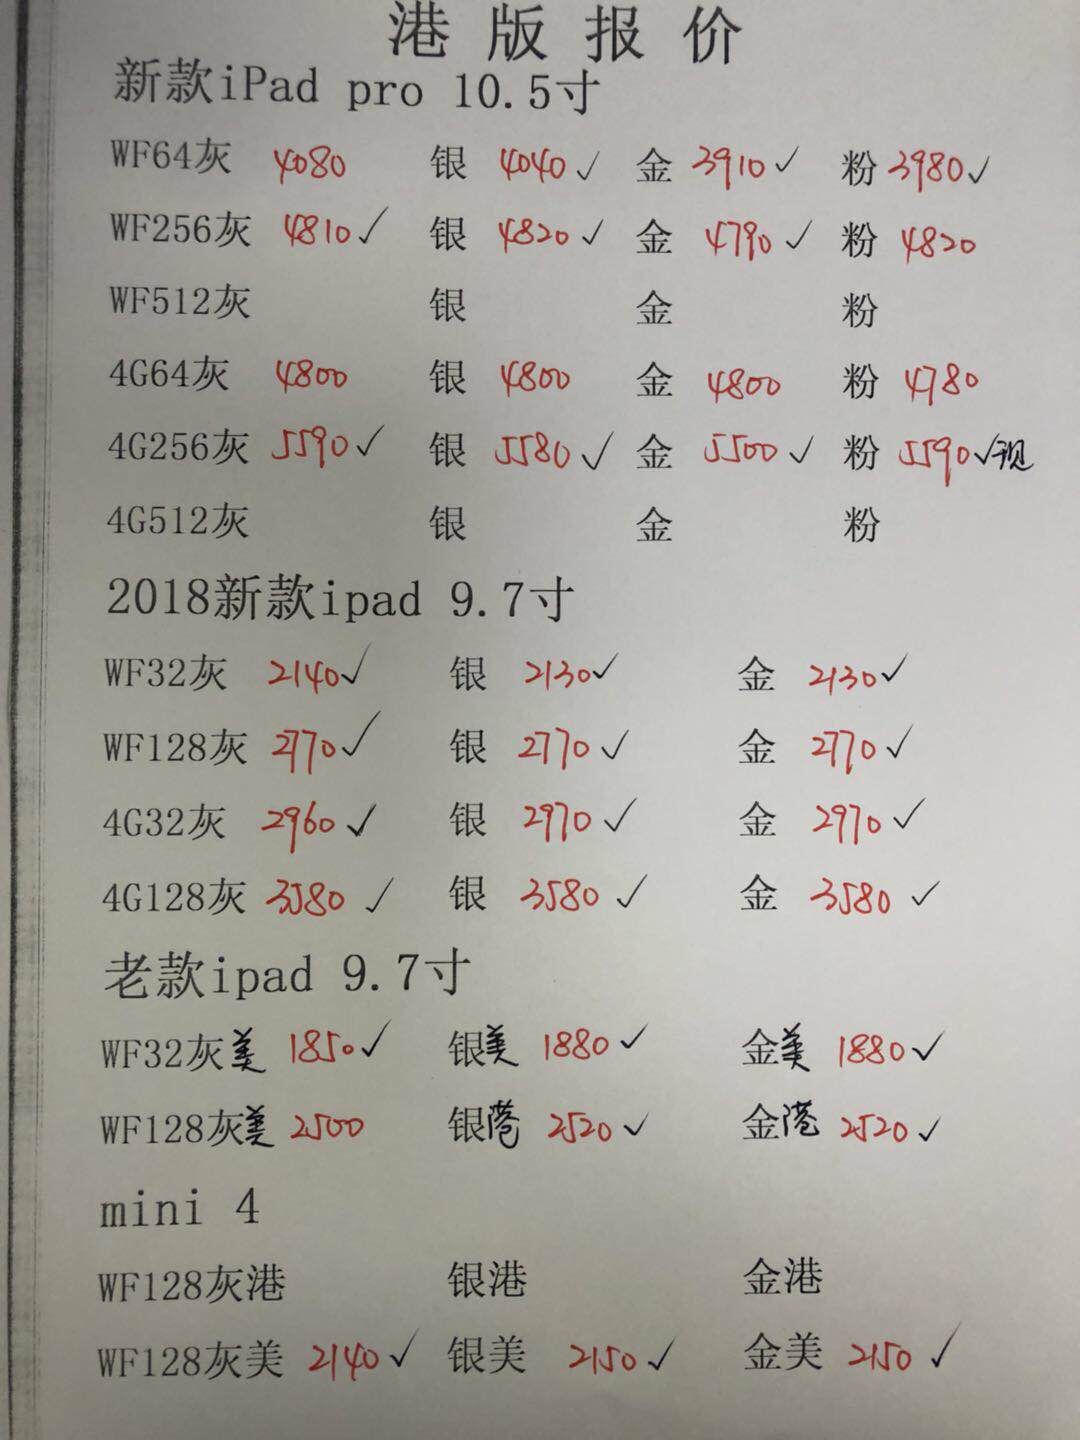 港版报价
新款iPad pro 10.5寸
WF64灰 4080 银 4040✓ 金 3910✓ 粉 3980✓
WF256灰 4810✓ 银 4820✓ 金 4790✓ 粉 4820
WF512灰 银 金 粉
4G64灰 4800 银 4800 金 4800 粉 4780
4G256灰 5590✓ 银 5580✓ 金 5500✓ 粉 5590✓现
4G512灰 银 金 粉
2018新款ipad 9.7寸
WF32灰 2140✓ 银 2130✓ 金 2130✓
WF128灰 2770✓ 银 2770✓ 金 2770✓
4G32灰 2960✓ 银 2970✓ 金 2970✓
4G128灰 3580✓ 银 3580✓ 金 3580✓
老款ipad 9.7寸
WF32灰美 1850✓ 银美 1880✓ 金美 1880✓
WF128灰美 2500 银港 2520✓ 金港 2520✓
mini 4
WF128灰港 银港 金港
WF128灰美 2140✓ 银美 2150✓ 金美 2150✓